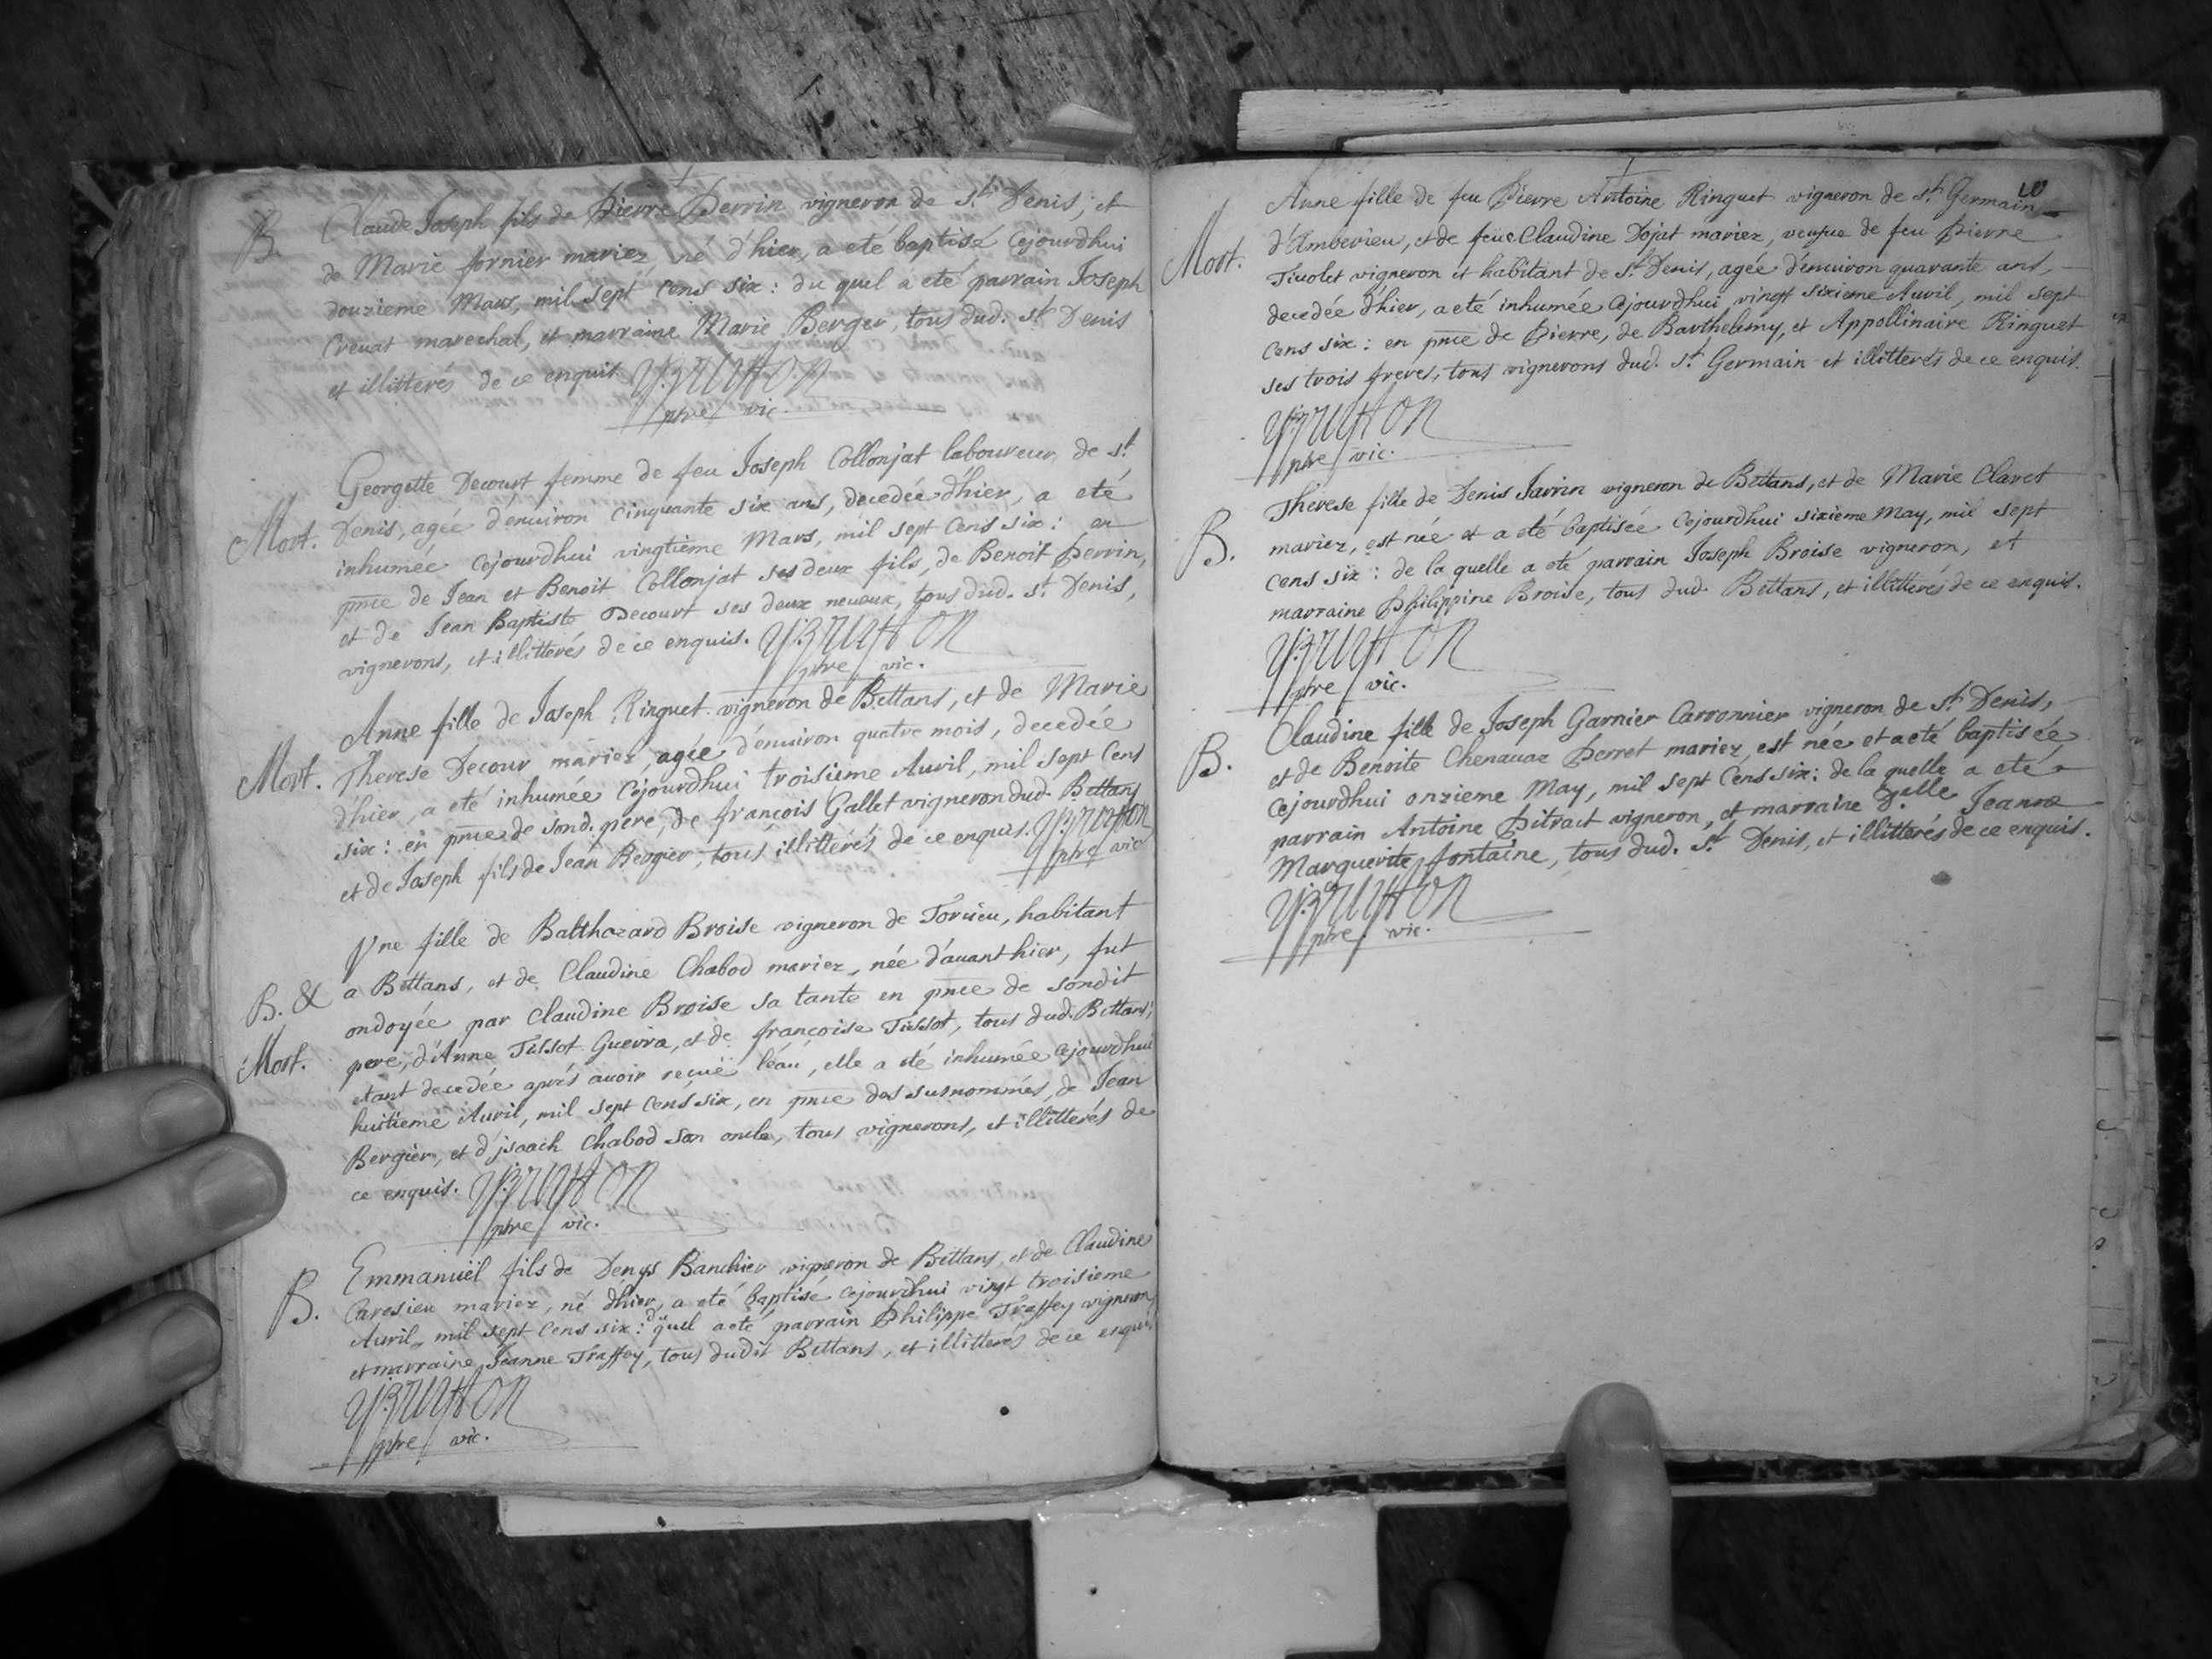 B. Claude Joseph fils de Pierre Perrin vigneron de St Denis, et
de Marie fornier mariez né d'hier, a eté baptisé cejourdhui
douzieme Mars, mil sept cens six : du quel a eté parrain Joseph
Creuat marechal, et marraine Marie Berger, tous dud. St Denis
et illitterés de ce enquis. YBruyson
ptre vic.
Georgette Decourt femme de feu Joseph Collonjat laboureur de St
Mort. Denis, agée d'enuiron cinquante six ans, decedée d'hier, a eté
inhumée cejourdhui vingtième Mars, mil sept cens six : en
pnce de Jean et Benoit Collonjat ses deux fils, de Benoit Perrin,
et de Jean Baptiste Decourt ses deux neueux, tous dud. St Denis,
vignerons, et illitterés de ce enquis.
ptre vic.
Anne fille de Joseph Ringuet vigneron de Bettans, et de Marie
Mort. Therese Decour mariez, agée d'enuiron quatre mois, decedée
d'hier, a eté inhumée cejourdhui troisieme Auril, mil sept cens
six : en pnce de sond. pere, de françois Gallet vigneron dud. Bettans
et de Joseph fils de Jean Bergier, tous illitterés de ce enquis.
ptre vic
Vne fille de Balthazard Broise vigneron de Torcieu, habitant
B. & a Bettans, et de Claudine Chabod mariez, née d'auanthier, fut
ondoyée par Claudine Broise sa tante en pnce de sondit
Mort. pere, d'Anne Tissot Gueira, et de françoise Tissot, tous dud. Bettans;
etant decedée aprés auoir receuë l'eau, elle a eté inhumée cejourdhui
huitieme Auril, mil sept cens six, en pnce des susnommés, de Jean
Bergier, et d'jsaach Chabod son oncle, tous vignerons, et illitterés de
ce enquis.
ptre vic.
Emmanuël fils de Denys Banchier vigneron de Bettans, et de Claudine
B. Caresieu mariez, né d'hier, a eté baptisé cejourdhui vingt troisieme
Auril, mil sept cens six : du quel a eté parrain Philippe Traffey vigneron,
et marraine Jeanne Traffey, tous dudit Bettans, et illitterés de ce enquis
ptre vic.
10
Anne fille de feu Pierre Antoine Ringuet vigneron de St Germain
Mort. d'Amberieu, et de feüe Claudine Dojat mariez, veufue de feu Pierre
Tiuolet vigneron et habitant de St Denis, agée d'enuiron quarante ans,
decedée d'hier, a eté inhumée cejourdhui vingt sixieme Auril, mil sept
cens six : en pnce de Pierre, de Barthelemy, et Appollinaire Ringuet
ses trois freres, tous vignerons dud. St Germain et illitterés de ce enquis.
ptre vic.
Therese fille de Denis Jarrin vigneron de Bettans, et de Marie Claret
B. mariez, est née et a eté baptisée cejourdhui sixieme May, mil sept
cens six : de la quelle a eté parrain Joseph Broise vigneron, et
marraine Philippine Broise, tous dud. Bettans, et illitterés de ce enquis.
ptre vic.
Claudine fille de Joseph Garnier Carronnier vigneron de St Denis,
B. et de Benoite Chenauaz Perret mariez, est née et a eté baptisée
cejourdhui onzieme May, mil sept cens six : de la quelle a eté
parrain Antoine Pitract vigneron, et marraine Dlle Jeanne
Marguerite fontaine, tous dud. St Denis, et illitterés de ce enquis.
ptre vic.